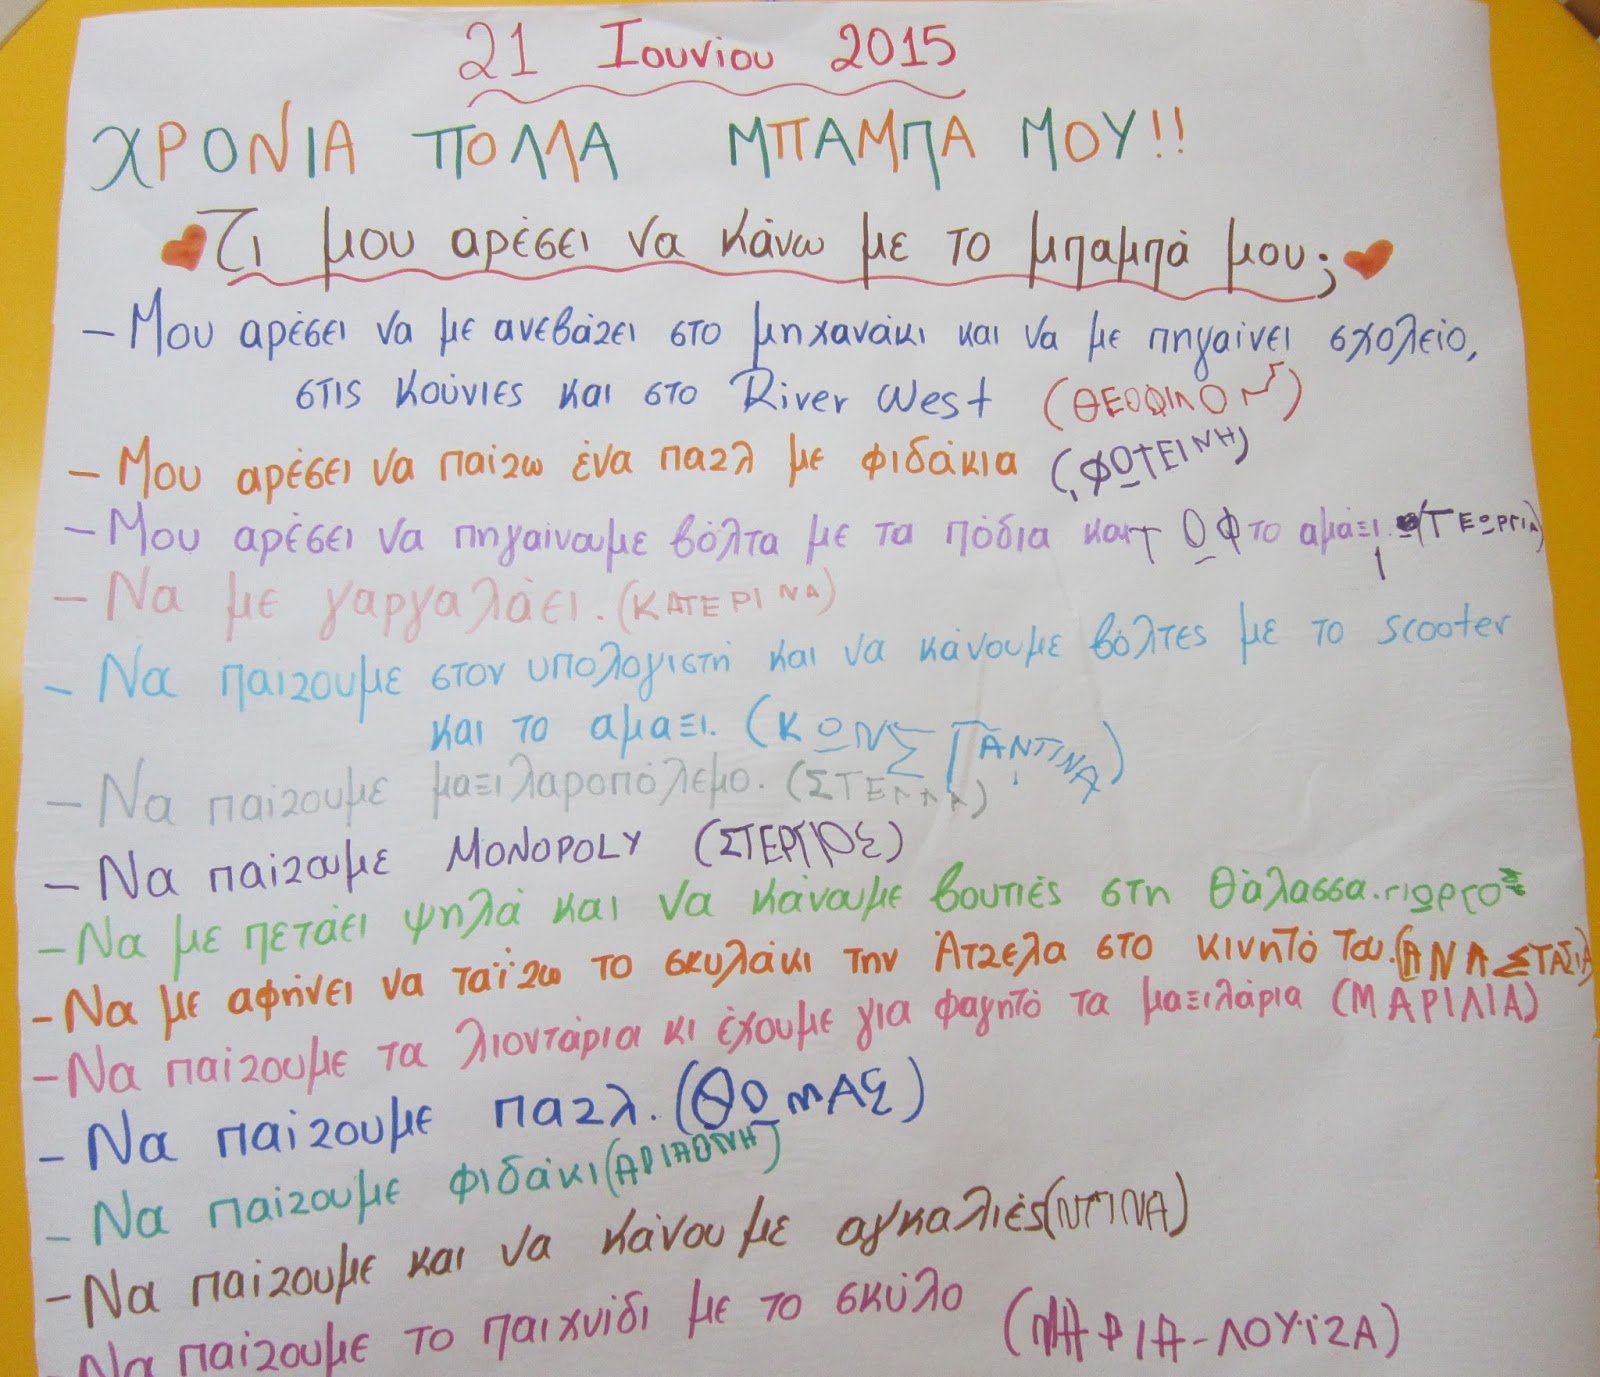 21 Ιουνίου 2015
ΧΡΟΝΙΑ ΠΟΛΛΑ ΜΠΑΜΠΑ ΜΟΥ!!
Τι μου αρέσει να κάνω με το μπαμπά μου;
- Μου αρέσει να με ανεβάζει στο μηχανάκι και να με πηγαίνει σχολείο,
στις κούνιες και στο River West (ΘΕΟΦΙΛΟΣ)
- Μου αρέσει να παίζω ένα παζλ με φιδάκια (ΦΩΤΕΙΝΗ)
- Μου αρέσει να πηγαίνουμε βόλτα με τα πόδια και το αμάξι. (ΓΕΩΡΓΙΑ)
- Να με γαργαλάει. (ΚΑΤΕΡΙΝΑ)
- Να παίζουμε στον υπολογιστή και να κάνουμε βόλτες με το scooter
και το αμαξι. (ΚΩΝΣΤΑΝΤΙΝΑ)
- Να παίζουμε μαξιλαροπόλεμο. (ΣΤΕΛΛΑ)
- Να παίζουμε MONOPOLY (ΣΤΕΡΓΙΟΣ)
- Να με πετάει ψηλά και να κάνουμε βουτιές στη θάλασσα. ΓΙΩΡΓΟΣ
- Να με αφήνει να ταΐζω το σκυλάκι την Άτζελα στο κινητό του. (ΑΝΑΣΤΑΣΙΑ)
- Να παίζουμε τα λιοντάρια κι έχουμε για φαγητό τα μαξιλάρια (ΜΑΡΙΛΙΑ)
- Να παίζουμε παζλ. (ΘΩΜΑΣ)
- Να παίζουμε φιδάκι (ΑΡΙΑΔΝΗ)
- Να παίζουμε και να κάνουμε αγκαλιές (ΝΤΙΝΑ)
Να παίζουμε το παιχνίδι με το σκύλο (ΜΑΡΙΑ-ΛΟΥΪΖΑ)